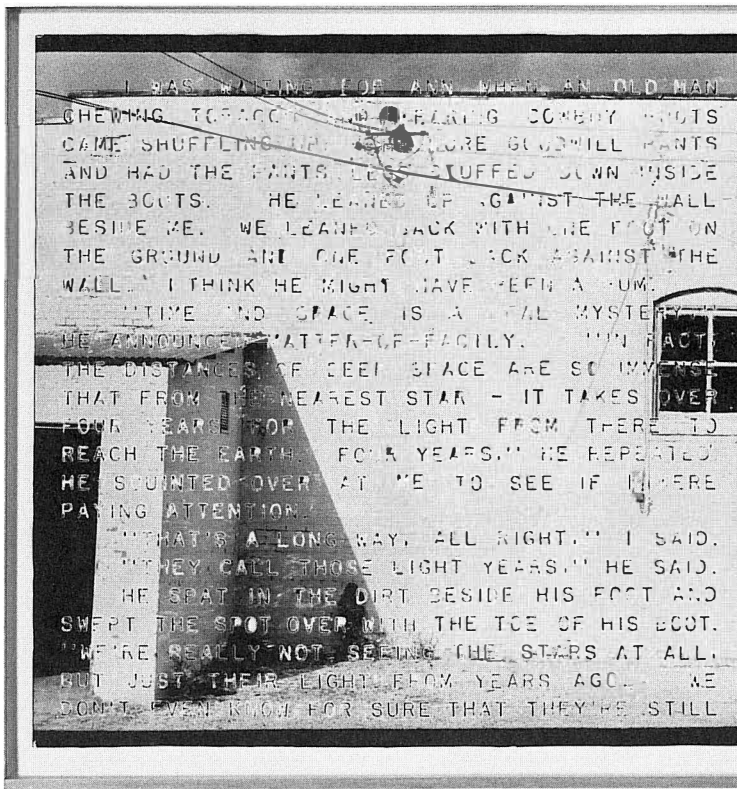 I WAS WAITING FOR ANN WHEN AN OLD MAN
CHEWING TOBACCO AND WEARING COWBOY BOOTS
CAME SHUFFLING UP. WORE GOODWILL PANTS
AND HAD THE PANTS LEGS STUFFED DOWN INSIDE
THE BOOTS. HE LEANED UP AGAINST THE WALL
BESIDE ME. WE LEANED BACK WITH ONE FOOT ON
THE GROUND AND ONE FOOT BACK AGAINST THE
WALL. I THINK HE MIGHT HAVE BEEN A BUM.
"TIME AND SPACE IS A REAL MYSTERY,"
HE ANNOUNCED MATTER-OF-FACTLY. "IN FACT,
THE DISTANCES OF DEEP SPACE ARE SO IMMENSE
THAT FROM THE NEAREST STAR - IT TAKES OVER
FOUR YEARS FOR THE LIGHT FROM THERE TO
REACH THE EARTH. FOUR YEARS," HE REPEATED.
HE SQUINTED OVER AT ME TO SEE IF I WERE
PAYING ATTENTION.
"THAT'S A LONG WAY, ALL RIGHT," I SAID.
"THEY CALL THOSE LIGHT YEARS," HE SAID.
HE SPAT IN THE DIRT BESIDE HIS FOOT AND
SWEPT THE SPOT OVER WITH THE TOE OF HIS BOOT.
"WE'RE REALLY NOT SEEING THE STARS AT ALL,
BUT JUST THEIR LIGHT FROM YEARS AGO. WE
DON'T EVEN KNOW FOR SURE THAT THEY'RE STILL